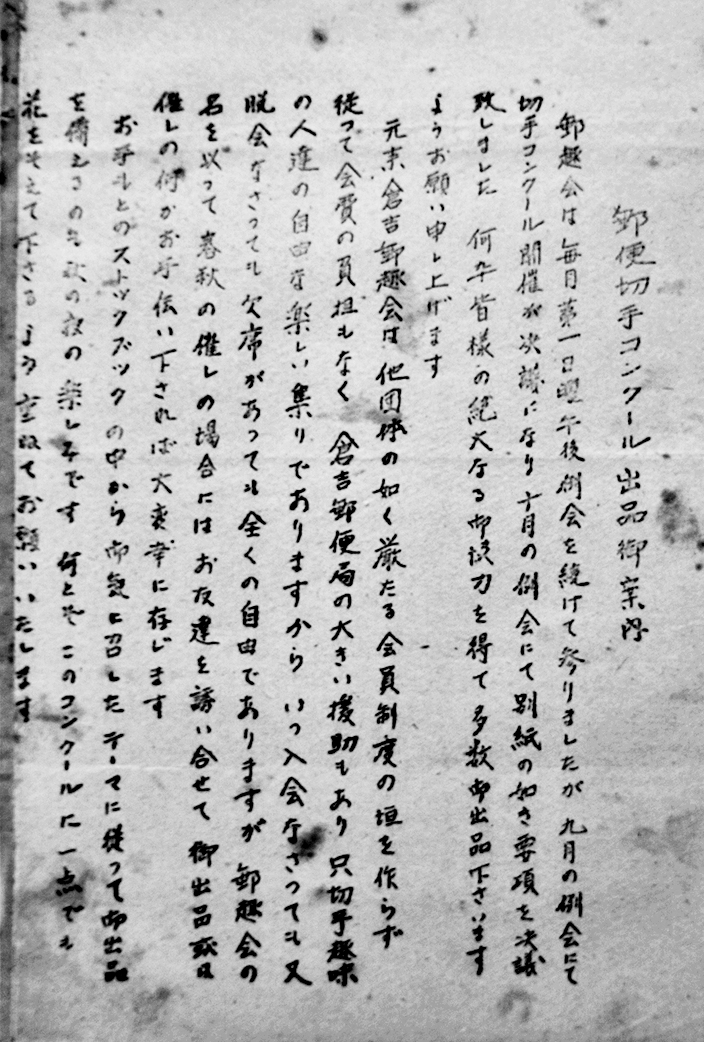 郵便切手コンクール出品御案内
郵趣会は毎月第一日曜午後例会を続けて参りましたが 九月の例会にて
切手コンクール開催が決議になり 十月の例会にて別紙の如き要項を決議
致しました 何卒皆様の絶大なる御協力を得て多数御出品下さいます
ようお願い申し上げます
元来倉吉郵趣会は 他団体の如く厳たる会員制度の垣を作らず
従って会費の負担もなく 倉吉郵便局の大きい援助もあり 只切手趣味
の人達の自由な楽しい集りでありますから いつ入会なさっても又
脱会なさっても欠席があっても全くの自由でありますが 郵趣会の
名を以って春秋の催しの場合にはお友達を誘い合せて 御出品或は
催しの何かお手伝い下されば大変幸に存じます
お手もとのストックブックの中から御気に召したテーマに従って御出品
を備えるのも秋の夜の楽しみです 何とぞこのコンクールに一点でも
花をそえて下さるよう重ねてお願いいたします